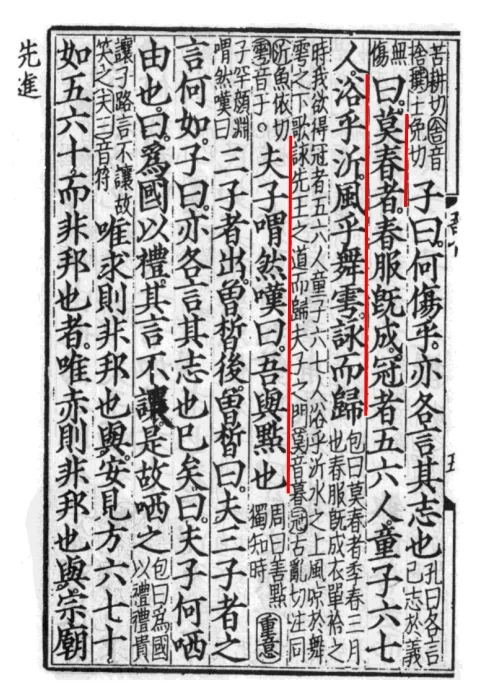 苦耕切舍音捨撰士免切子曰。何傷乎。亦各言其志也孔曰各言己志於義
無傷曰。莫春者。春服既成。冠者五六人。童子六七
人。浴乎沂。風乎舞雩。詠而歸包曰莫春者季春三月也春服既成衣單袷之
時我欲得冠者五六人童子六七人浴乎沂水之上風凉於舞雩之下歌詠先王之道而歸夫子之門莫音暮冠古亂切注同
沂魚依切雩音于夫子喟然嘆曰。吾與點也周曰善點獨知時重意
子罕顔淵喟然嘆曰三子者出。曾皙後。曾皙曰。夫三子者之
言何如。子曰。亦各言其志也已矣。曰。夫子何哂
由也。曰。爲國以禮。其言不讓。是故哂之包曰爲國以禮禮貴
讓子路言不讓故笑之夫三音符唯求則非邦也與。安見方六七十
如五六十。而非邦也者。唯赤則非邦也與。宗廟
先進